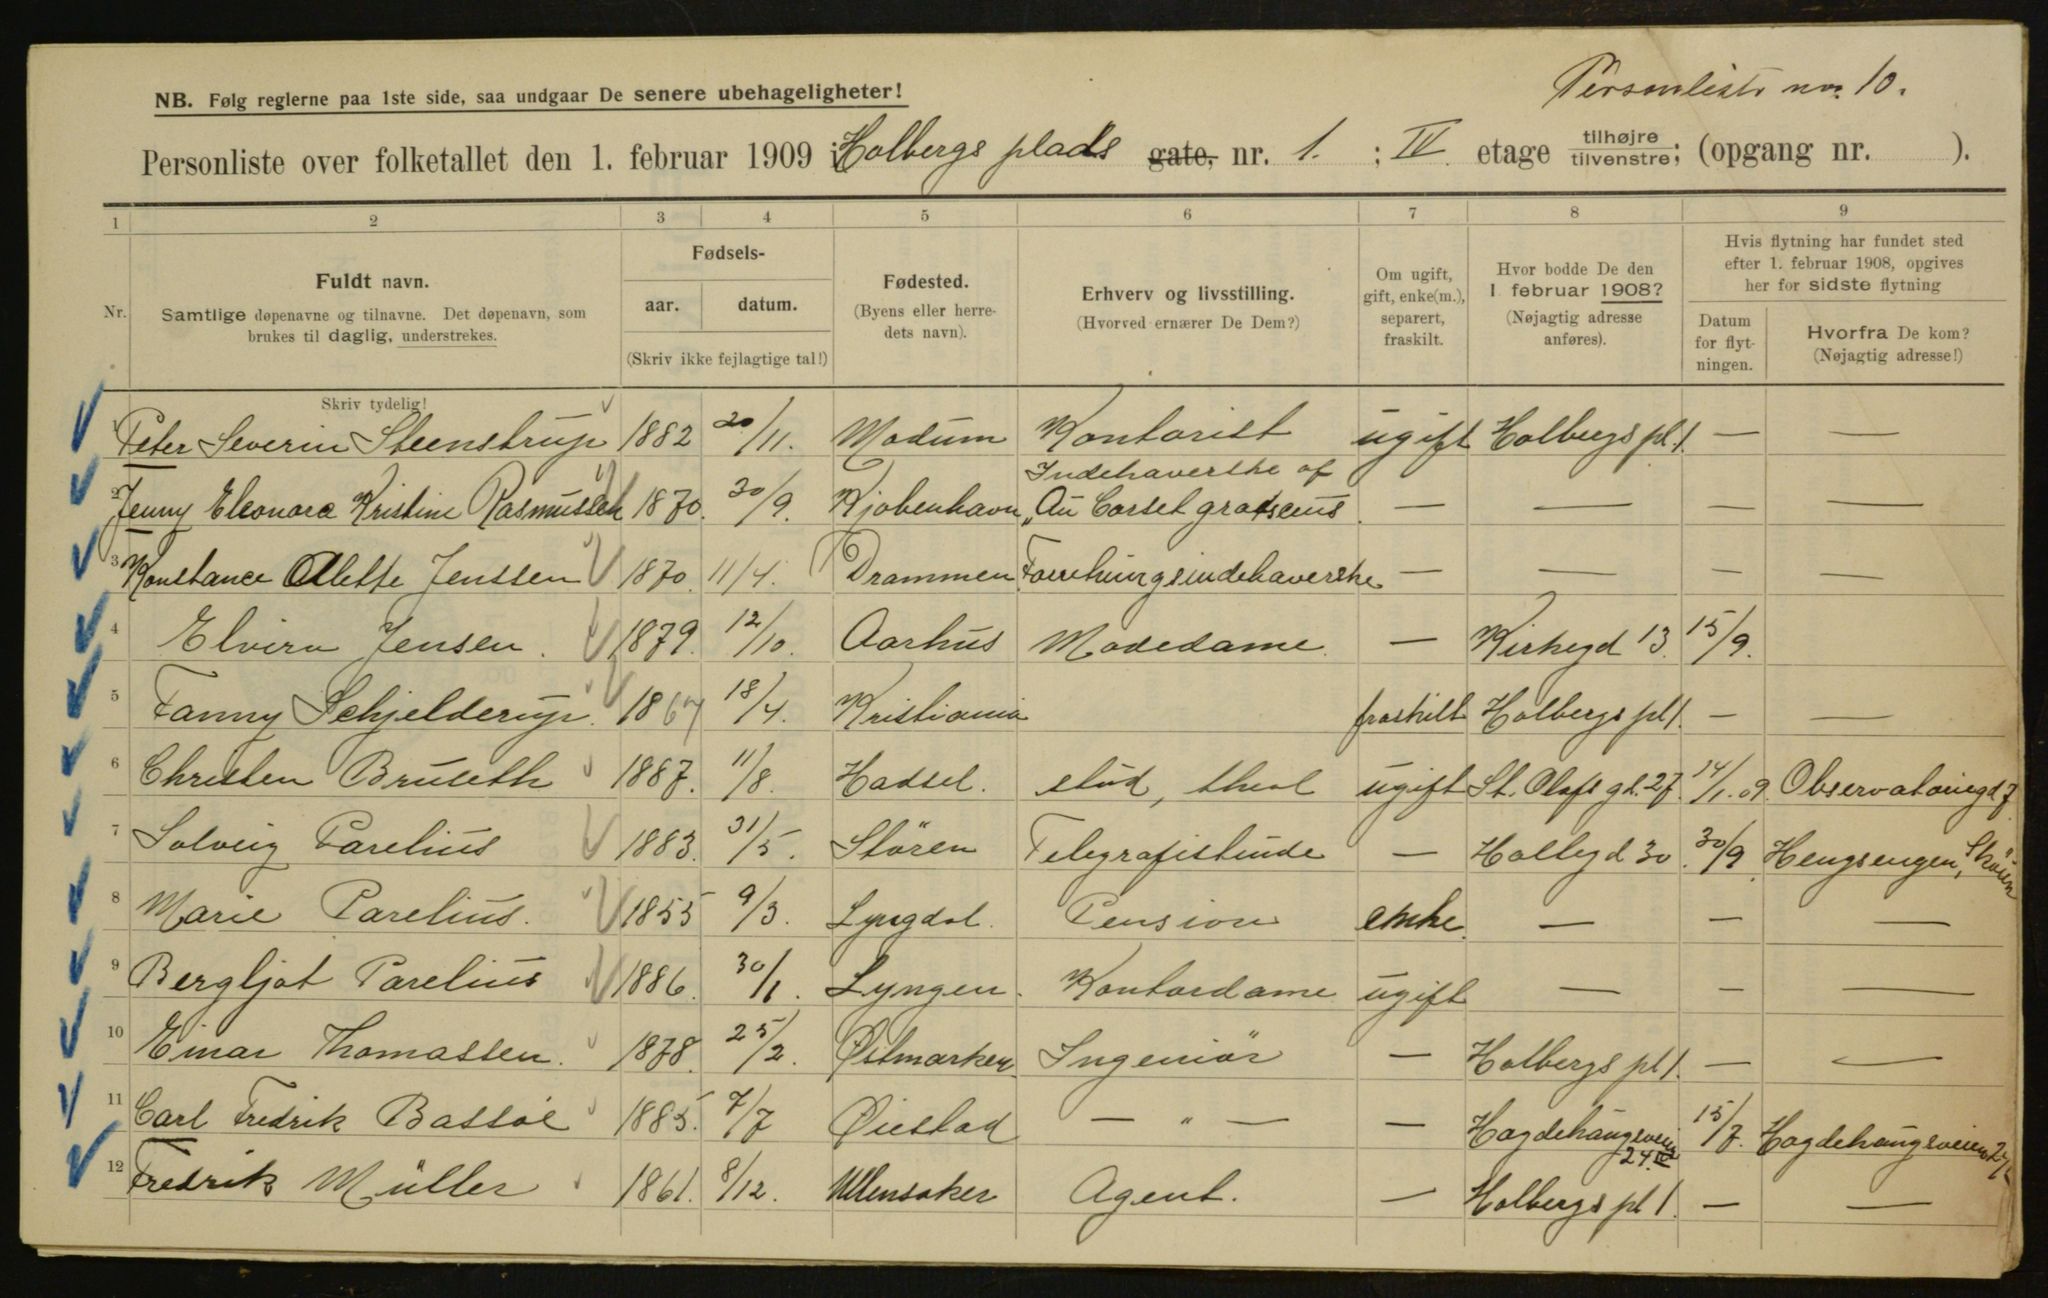 Personliste no. 10.
NB. Følg reglerne paa 1ste side, saa undgaar De senere ubehageligheter!
Personliste over folketallet den 1. februar 1909 i Holbergs plads gate, nr. 1. ; IV etage tilhøjre tilvenstre; (opgang nr. ).
1 2 3 4 5 6 7 8 9
Nr.
Fuldt navn.
Samtlige døpenavne og tilnavne. Det døpenavn, som
brukes til daglig, understrekes.
Skriv tydelig!
Fødsels-
aar. datum.
(Skriv ikke fejlagtige tal!)
Fødested.
(Byens eller herre-
dets navn).
Erhverv og livsstilling.
(Hvorved ernærer De Dem?)
Om ugift,
gift, enke(m.),
separert,
fraskilt.
Hvor bodde De den
1 februar 1908?
(Nøjagtig adresse
anføres).
Hvis flytning har fundet sted
efter 1. februar 1908, opgives
her for sidste flytning
Datum
for flyt-
ningen.
Hvorfra De kom?
(Nøjagtig adresse!)
1 Peter Severin Steenstrup 1882 20/11. Modum Kontorist ugift Holbergs pl. 1. — —
2 Jenny Eleonora Kristine Rasmussen 1870. 30/9. Kjøbenhavn Indehaverske af „Au Corset — — — —
3 Konstance Alette Jenssen 1870 11/4. Drammen Forretningsindehaverske — — — —
4 Elvira Jensen. 1879. 12/10. Aarhus Modedame. — Kirkegd 13. 15/9.
5 Fanny Schjelderup. 1867 18/4. Kristiania fraskilt Holbergs pl 1. — —
6 Christen Bruseth 1887. 11/8. Hadsel. stud, theol ugift St. Olafs gd. 27. 14/1. 09. Observatoriegd 7
7 Solveig Parelius 1883. 31/5. Støren Telegrafistinde — Holtegd 30. 30/9. Hengsengen, Skøien
8 Marie Parelius. 1855 9/3. Lyngdal. Pension enke. — — —
9 Bergljot Parelius 1886. 30/1. Lyngen. Kontordame ugift — — —
10 Einar Thomassen. 1878. 25/2. Østmarken. Ingeniør — Holbergs pl 1. — —
11 Carl Fredrik Bassøe 1885. 7/7 Øiestad — " — — Hagdehaugsveien 24 IV 15/7. Hagdehaugsveien
12 Fredrik Müller 1861. 8/12. Ullensaker Agent. — Holbergs pl 1. — —